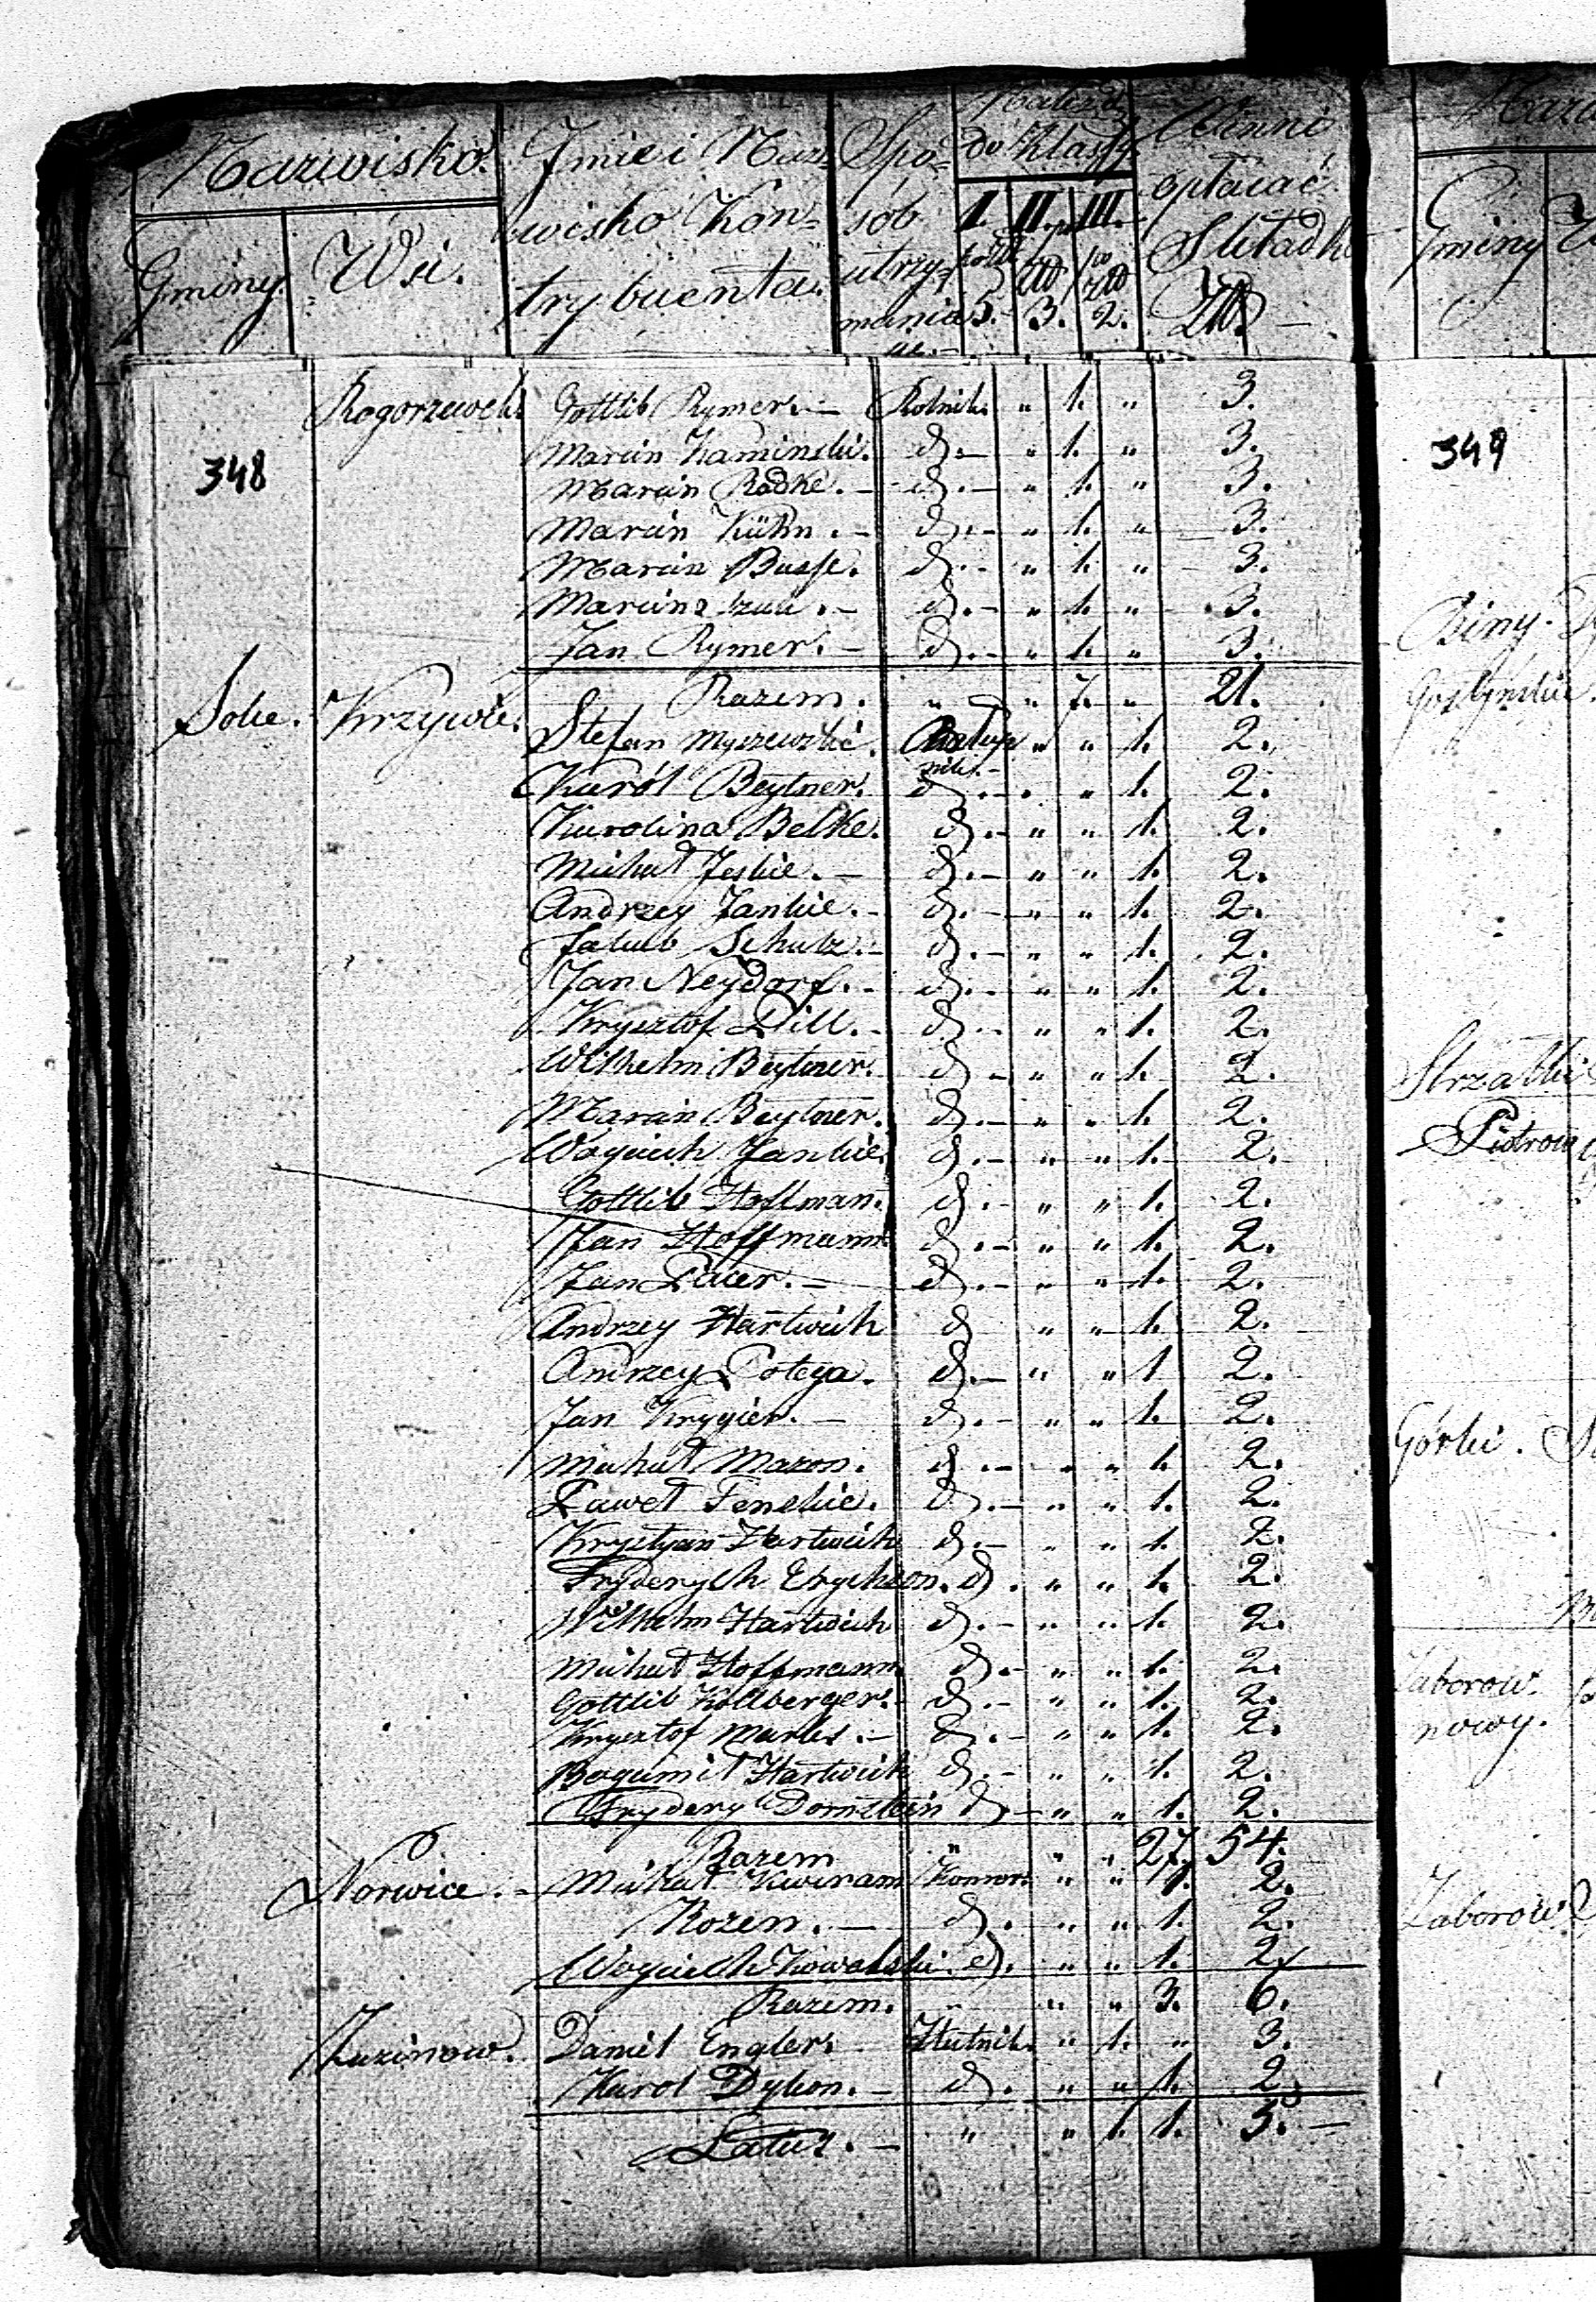 Nazwisko
Gminy.
Wsi.
Jmie i Naz=
wisko Kon=
trybuenta.
Spo=
sób
utrzy=
mania
do Klassy.
I. II. III.
5. 3. 2.
Winni
opłacać
Składki
Złł.
348
Rogorzewek Gottlib Rymer. — Rolnik. " 1. " 3.
Marcin Kaminski. d. — " 1. " 3.
Marcin Radke. — d. — " 1. " 3.
Marcin Kühn. — d. — " 1. " 3.
Marcin Busse. d. — " 1. " 3.
Marcin d. — " 1. " 3.
Jan Rymer. — d. — " 1. " 3.
Razem. " " 7. " 21.
Sokie. Krzywie. Stefan Myszewski. Chałup= " " 1. 2.
nik. —
Karól Beytner. d. — " " 1. 2.
Karolina Belke. d. — " " 1. 2.
Michał Jeskie. — d. — " " 1. 2.
Andrzey Jankie. — d. — " " 1. 2.
Jakub Schulz. — d. — " " 1. 2.
Jan Neydorf. — d. — " " 1. 2.
Krysztof Dill. — d. — " " 1. 2.
Wilhelm Beytner. d. — " " 1. 2.
Marcin Beytner. d. — " " 1. 2.
Woyciech Jankie. d. — " " 1. 2.
Gottlib Hoffman. d. — " " 1. 2.
Jan Hoffmann. d. — " " 1. 2.
Jan Lauer. — d. — " " 1. 2.
Andrzey Hartwich d " " 1. 2.
Andrzey Potęga. d. — " " 1 2.
Jan Krygier. — d. — " " 1. 2.
Michał Mazon. d. — " " 1. 2.
Paweł Fenskie. d. — " " 1. 2.
Krystyan Hartwich d. — " " 1. 2.
Fryderych Erychson. d. " " 1. 2.
Wilhelm Hartwich d. — " " 1. 2.
Michał Hoffmann. d. — " " 1. 2.
Gottlib Kollberger. d. — " " 1. 2.
Krysztof Marks. — d. — " " 1. 2.
Bogumił Hartwich d. — " " 1. 2.
Fryderyk Dornstein d. — " " 1. 2.
Razem " " " 27. 54.
Norwice. — Michał Kwiram Komor. " " 1. 2.
Rozen. — d. " " 1. 2.
Woyciech Kowalski. d. " " 1. 2.
Razem. " " " 3. 6.
Kazinow. Daniel Engler. Hutnik. " 1. " 3.
Karol Dykon. — d. " " 1. 2.
Latus. — " " 1. 1. 5. —
Gminy
349
Gostynskie.
Strzałki
Piotrow
Górki.
Zaborow
nowy.
Zaborow